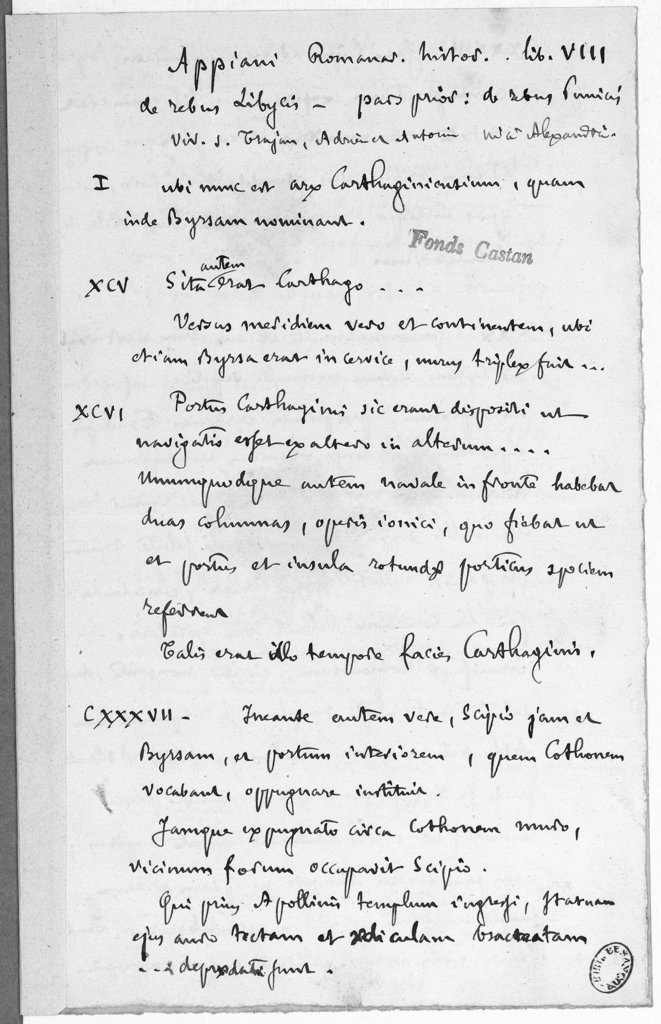 Appiani Romanar. histor. . lib. VIII
de rebus Libycis — pars prior: de rebus Punicis
viv. s. Trajan, Adrian et Antonin Alexandri.
I ubi nunc est arx Carthaginiensium, quam
inde Byrsam nominant.
Fonds Castan
XCV Sita autem erat Carthago . . .
Versus meridiem vero et continentem, ubi
etiam Byrsa erat in cervice, murus triplex fuit ...
XCVI Portus Carthaginis sic erant dispositi ut
navigatio esset ex altero in alterum . . . .
Unumquodque autem navale in fronte habebat
duas columnas, operis ionici, quo fiebat ut
et portus et insula rotundæ porticus speciem
referrent
Talis erat illo tempore facies Carthaginis.
CXXXVII — Ineunte autem vere, Scipio jam et
Byrsam, et portum interiorem, quem Cothonem
vocabant, oppugnare instituit.
Jamque expugnato circa Cothonem muro,
vicinum forum occupavit Scipio.
Qui prius Apollinis templum ingressi, statuam
ejus auro tectam et ædiculam bracteatam
... deprædati sunt.
BIBL. BESANÇON